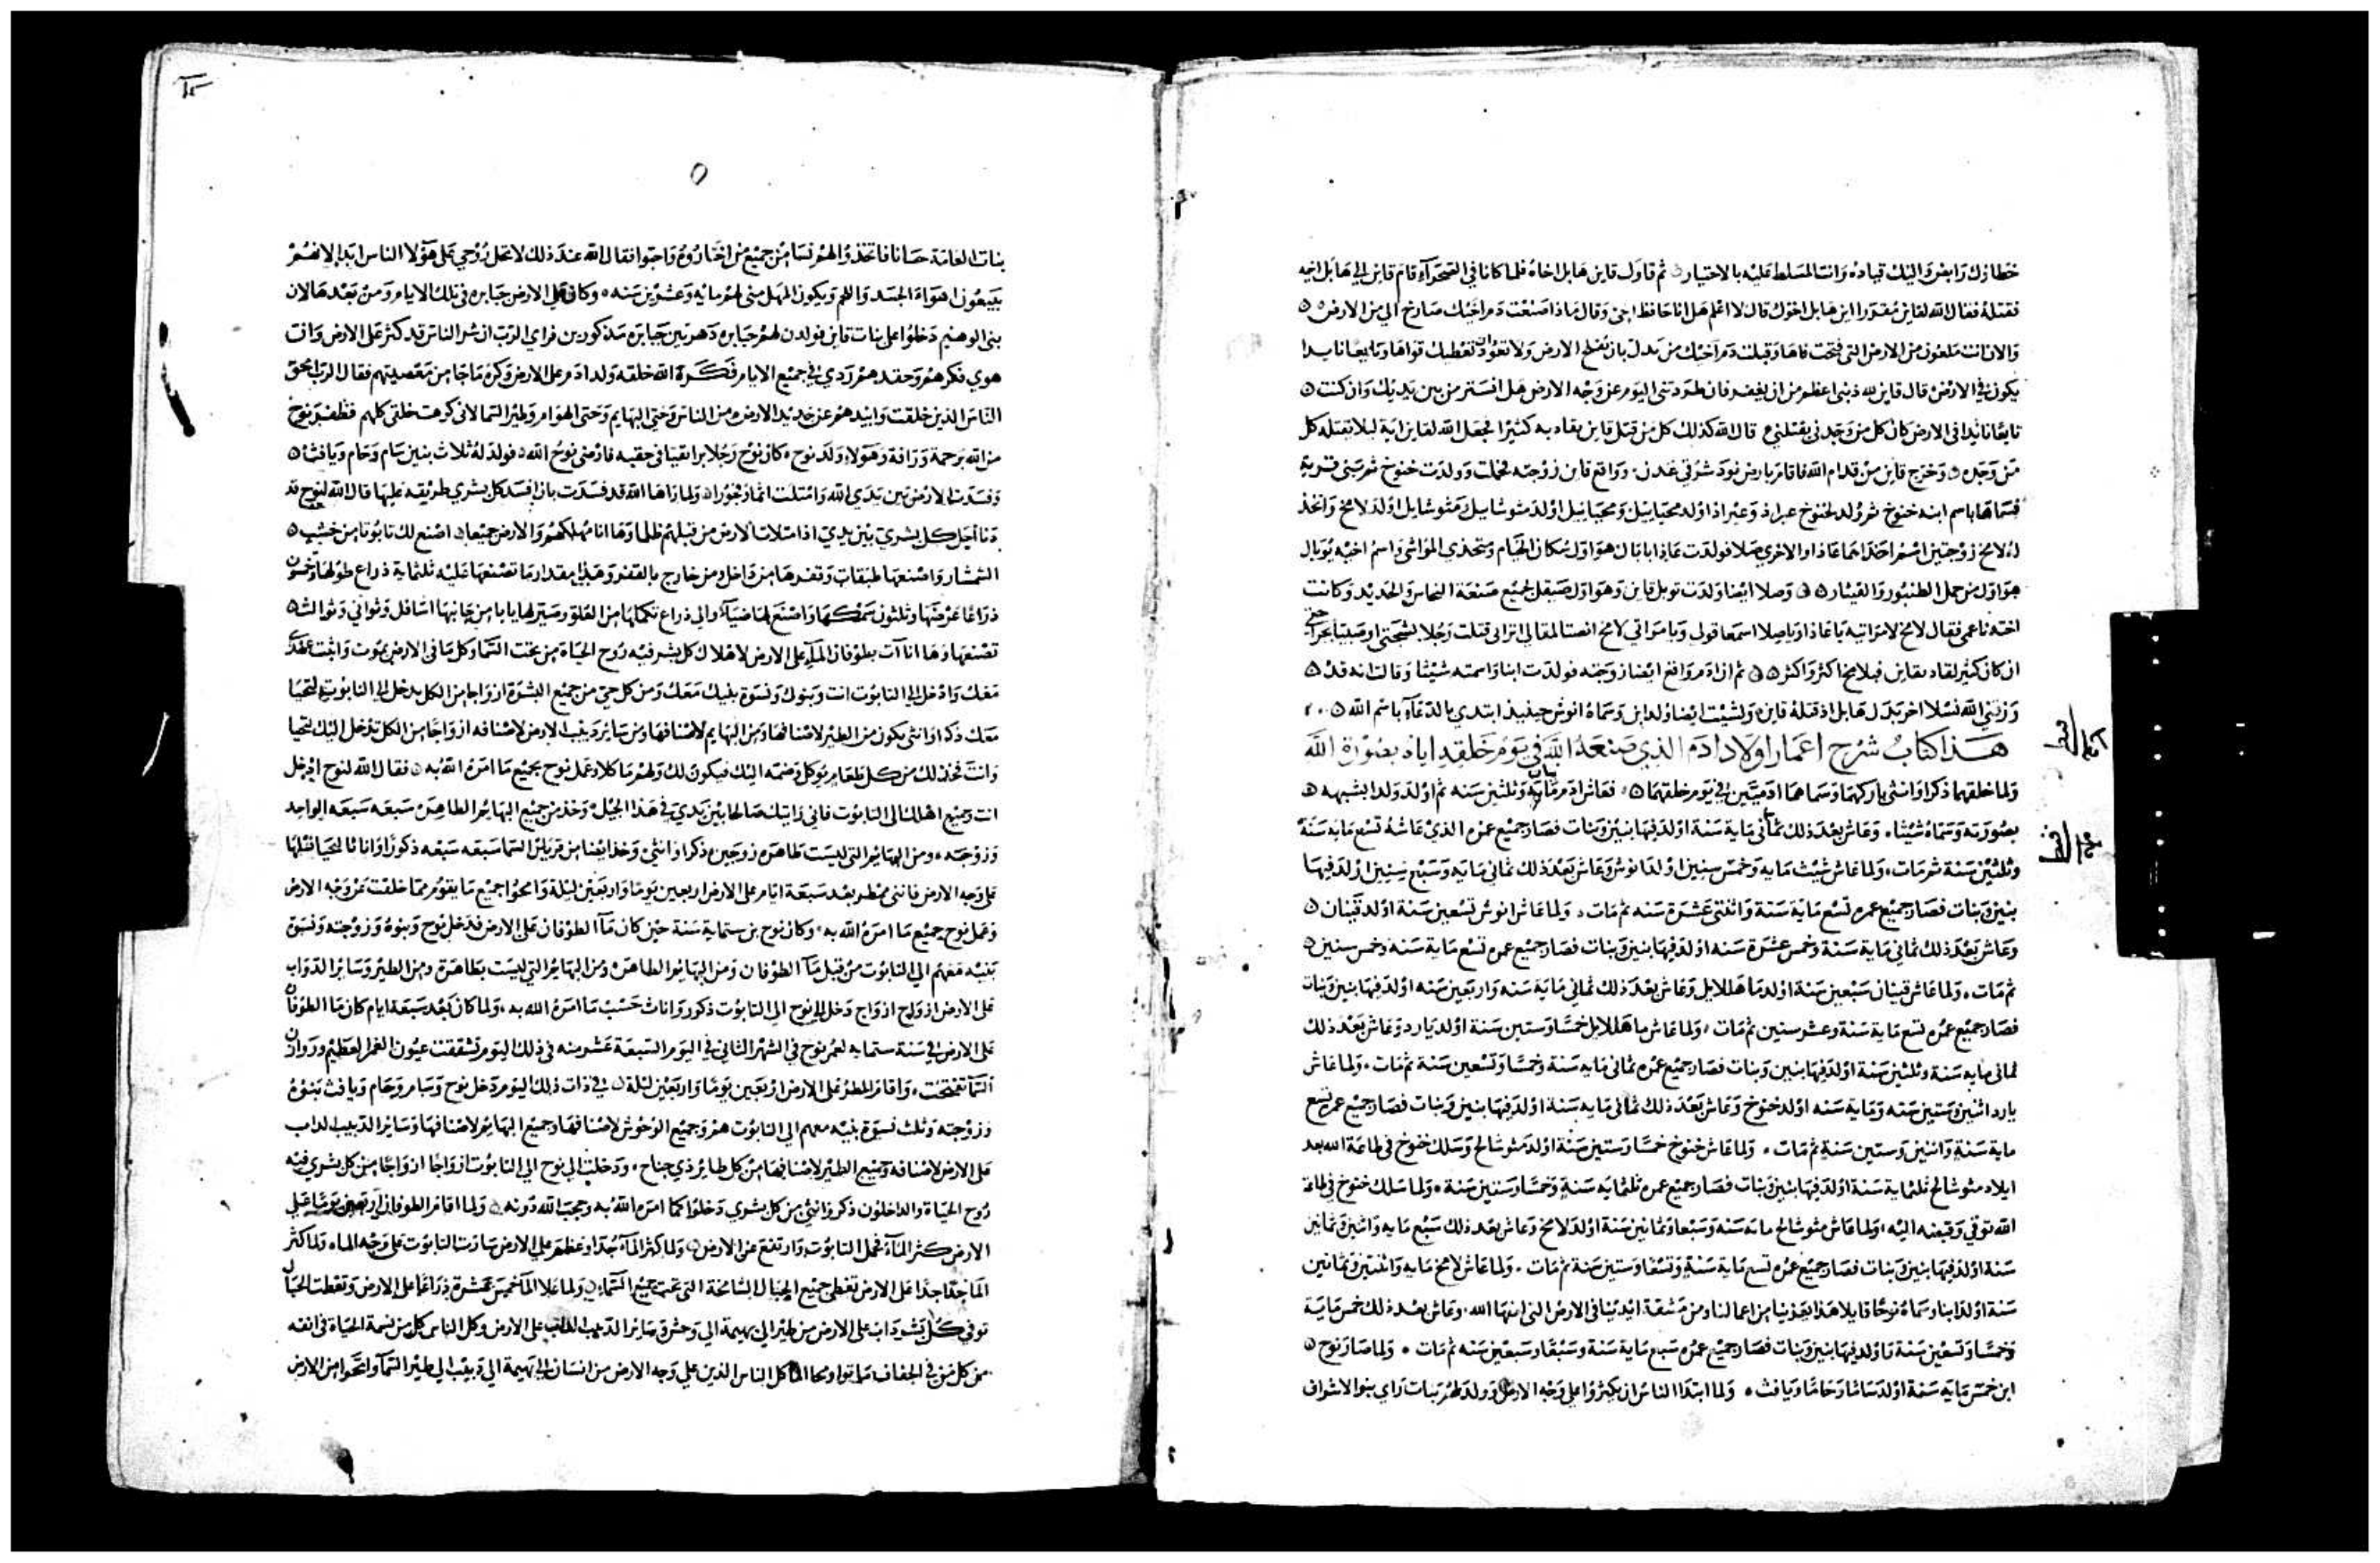 خطاؤك رابض واليك قياده وانت المسلط عليه بالاختيار ثم قاول قاين هابل اخاه فلما كانا في الصحراء قام قاين الي هابل اخيه
فقتله فقال الله لقاين مقررا اين هابل اخوك قال لا اعلم هل انا حافظ اخي وقال ماذا صنعت دم اخيك صارخ الي من الارض
والان انت ملعون من الارض التي فتحت فاها وقبلت دم اخيك من يدك بان تفلح الارض ولا تعود تعطيك قواها وتايها نايدا
يكون في الارض قال قاين لله ذنبي اعظم من ان يغفر فان طردتني اليوم عن وجه الارض هل استتر من بين يديك وان كنت
تايها نايدا في الارض كان كل من وجدني يقتلني قال الله كذلك كل من قتل قاين يقاد به كثيرا فجعل الله لقاين اية ليلا تقتله كل
من وجده وخرج قاين من قدام الله فاقام بارض نود شرقي عدن وواقع قاين زوجته فحملت وولدت خنوخ ثم بنى قرية
فسماها باسم ابنه خنوخ ثم ولد لخنوخ عيراد وعيراد اولد محياييل ومحياييل اولد متوشاييل ومتوشايل اولد لامخ واتخذ
له لامخ زوجتين اسم احداهما عاذا والاخرى صلا فولدت عاذا يابال هو اول سكان الخيام ومتخذي المواشي واسم اخيه يوبال
هو اول من حمل الطنبور والقيثار وصلا ايضا ولدت توبل قاين وهو اول صيقل لجميع صنعة النحاس والحديد وكانت
اخته ناعمى فقال لامخ لامراتيه يا عاذا ويا صلا اسمعا قولي ويا مراتي لامخ انصتا لمقالي اتراني قتلت رجلا بشجتي او صبيا بجراحي
ان كان كثير يقاد بقاين فبلامخ اكثر واكثر ثم ان ادم واقع ايضا زوجته فولدت ابنا واسمته شيثا وقالت انه قد
رزقني الله نسلا اخر بدل هابل اذ قتله قاين ولشيث ايضا ولد ابن وسماه انوش حينيذ ابتدي بالدعاء باسم الله
هذا كتاب شرح اعمار اولاد ادم الذي صنعه الله في يوم خلقه اياه بصورة الله
ولما خلقهما ذكرا وانثى باركهما وسماهما ادميين في يوم خلقهما فعاش ادم ماية وثلثين سنه ثم اولد ولدا يشبهه
بصورته وسماه شيثا وعاش بعد ذلك ثماني ماية سنة اولد فيها بنين وبنات فصار جميع عمره الذي عاشه تسع مايه سنة
وثلثين سنة ثم مات ولما عاش شيث مايه وخمس سنين اولد انوش وعاش بعد ذلك ثماني مايه وسبع سنين اولد فيها
بنين وبنات فصار جميع عمره تسع ماية سنة واثنتي عشرة سنه ثم مات ولما عاش انوش تسعين سنة اولد قينان
وعاش بعد ذلك ثماني ماية سنة وخمس عشرة سنه اولد فيها بنين وبنات فصار جميع عمره تسع ماية سنه وخمس سنين
ثم مات ولما عاش قينان سبعين سنة اولد ماهللايل وعاش بعد ذلك ثماني ماية سنه واربعين سنه اولد فيها بنين وبنات
فصار جميع عمره تسع ماية سنة وعشر سنين ثم مات ولما عاش ماهللايل خمسا وستين سنة اولد يارد وعاش بعد ذلك
ثماني مايه سنة وثلثين سنة اولد فيها بنين وبنات فصار جميع عمره ثماني مايه سنة وخمسا وتسعين سنة ثم مات ولما عاش
يارد اثنين وستين سنه وماية سنه اولد خنوخ وعاش بعد ذلك ثماني ماية سنة اولد فيها بنين وبنات فصار جميع عمره تسع
ماية سنة واثنين وستين سنة ثم مات ولما عاش خنوخ خمسا وستين سنة اولد متوشالح وسلك خنوخ في طاعة الله بعد
ايلاد متوشالح ثلثماية سنة اولد فيها بنين وبنات فصار جميع عمره ثلثمايه سنة وخمسا وستين سنة ولما سلك خنوخ في طاعة
الله توفي وقبضه اليه ولما عاش متوشالح مايه سنه وسبعا وثمانين سنة اولد لامخ وعاش بعد ذلك سبع مايه واثنين وثمانين
سنة اولد فيها بنين وبنات فصار جميع عمره تسع ماية سنة وتسعا وستين سنة ثم مات ولما عاش لامخ مايه واثنتين وثمانين
سنة اولد ابنا وسماه نوحا قايلا هذا يعزينا من اعمالنا ومن مشقة ايدينا في الارض التي لعنها الله وعاش بعد ذلك خمس ماية
وخمسا وتسعين سنة اولد فيها بنين وبنات فصار جميع عمره سبع ماية سنة وسبعا وسبعين سنه ثم مات ولما صار نوح
ابن خمس ماية سنة اولد ساما وحاما ويافث ولما ابتدا الناس ان يكثروا على وجه الارض وولد لهم بنات راي بنو الاشراف
بنات العامة حسانا فاتخذوا لهم نسا من جميع من اختاروه واحبوا فقال الله عند ذلك لا تحل روحي على هولا الناس ابدا لانهم
يتبعون اهواء الجسد واللحم ويكون المهل مني لهم مايه وعشرين سنه وكان على الارض جبابره في تلك الايام ومن بعدها لان
بني الوهيم دخلوا على بنات قاين فولدن لهم جبابره دهريين جبابره مذكورين فراي الرب ان شر الناس قد كثر على الارض وان
هوي فكرهم وحقدهم ردي في جميع الايام فكره الله خلقه ولد ادم على الارض وكره ما جا من معصيتهم فقال الرب امحق
الناس الذين خلقت وابيدهم عن جديد الارض من الناس وحتى البهايم وحتى الهوام وطير السما لاني كرهت خلقي كلهم فظفر نوح
من الله برحمة ورافة وهولاء ولد نوح كان نوح رجلا برا تقيا في حقبه فارضى نوح الله فولد له ثلاث بنين سام وحام ويافث
وفسدت الارض بين يدي الله وامتلت اثما وفجورا ولما راها الله قد فسدت بان افسد كل بشري طريقه عليها قال الله لنوح قد
دنا اجل كل بشري بين يدي اذ امتلات الارض من قبلهم ظلما وها انا مهلكهم والارض جميعا اصنع لك تابوتا من خشب
الشمشار واصنعها طبقات وقفرها من داخل ومن خارج بالقفر وهذا مقدار ما تصنعها عليه ثلثماية ذراع طولها وخمسون
ذراعا عرضها وثلثون سمكها واصنع لها ضياء والي ذراع تكملها من العلو وصير لها بابا من جانبها اسافل وثواني وثوالث
تصنعها وها انا آت بطوفان الماء على الارض لاهلاك كل بشر فيه روح الحياة من تحت السماء وكل ما في الارض يموت واثبت عهدي
معك وادخل الي التابوت انت وبنوك ونسوة بنيك معك ومن كل حي من جميع البشر ازواجا من الكل يدخل الي التابوت لتحيا
معك ذكرا وانثى يكون من الطير لاصنافها ومن البهايم لاصنافها ومن ساير دبيب الارض لاصنافه ازواجا من الكل تدخل اليك لتحيا
وانت فخذ لك من كل طعام يوكل وضمه اليك فيكون لك ولهم ماكلا وعمل نوح بجميع ما امره الله به فقال الله لنوح ادخل
انت وجميع اهلك الى التابوت فاني رايتك صالحا بين يدي في هذا الجيل وخذ من جميع البهايم الطاهره سبعه سبعه الواحد
وزوجته ومن البهايم التي ليست طاهره زوجين ذكرا وانثى وخذ ايضا من طير السما سبعه سبعه ذكورا واناثا لتحيا نسلها
على وجه الارض فانني ممطر بعد سبعة ايام على الارض اربعين يوما واربعين ليلة وامحو جميع ما يقوم مما خلقت عن وجه الارض
وعمل نوح جميع ما امره الله به وكان نوح بن ستماية سنة حين كان ماء الطوفان على الارض فدخل نوح وبنوه وزوجته ونسوة
بنيه معهم الي التابوت من قبل ماء الطوفان ومن البهايم الطاهره ومن البهايم التي ليست بطاهرة ومن الطير وساير الدواب
على الارض ازواج ازواج دخل الي نوح الي التابوت ذكور واناث حسب ما امره الله به ولما كان بعد سبعة ايام كان ما الطوفان
على الارض في سنة ستمايه لعمر نوح في الشهر الثاني في اليوم السبعة عشر منه في ذلك اليوم تشققت عيون الغمر العظيم وروازن
السماء تفتحت واقام المطر على الارض اربعين يوما واربعين ليلة في ذات ذلك اليوم دخل نوح وسام وحام ويافث بنوه
وزوجته وثلث نسوة بنيه معهم الي التابوت هم وجميع الوحوش لاصنافها وجميع البهايم لاصنافها وساير الدبيب الداب
على الارض لاصنافه وجميع الطير لاصنافها من كل طاير ذي جناح ودخلت الي نوح الي التابوت ازواجا ازواجا من كل بشري فيه
روح الحياة والداخلون ذكر وانثى من كل بشري دخلوا كما امره الله به وحجب الله دونه ولما اقام الطوفان اربعين يوما على
الارض كثر الماء فحمل التابوت وارتفع عن الارض ولما كثر الماء جدا وعظم على الارض سارت التابوت على وجه الماء ولما كثر
الما جدا جدا على الارض تغطى جميع الجبال الشامخة التي تحت جميع السماء ولما علا الما خمس عشرة ذراعا على الارض وتغطت الجبال
توفي كل بشر داب على الارض من طير الي بهيمة الي وحش وساير الدبيب الداب على الارض وكل الناس كل من نسمة الحياة في انفه
من كل من في الجفاف ماتوا ومحا الله كل الناس الذين على وجه الارض من انسان الي بهيمة الي دبيب الي طير السماء وامتحوا من الارض